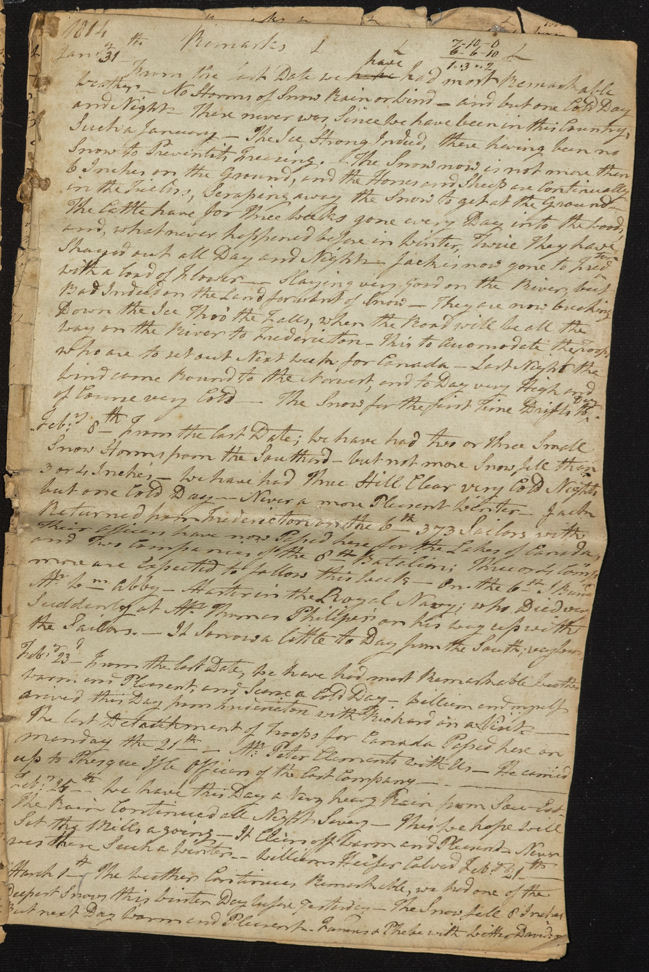 1814
Jany 31th Remarks £ 7-10-0 £
6-6-10
1-3-2
From the last Date we have had most Remarkable
weather - No Storms of Snow Rain or Wind - and but one Cold Day
and Night - There never was Since we have been in this Country,
Such a January - The Ice Strong Indeed, there having been no
Snow to Prevent it Freezing. The Snow now, is not more then
6 Inches on the Ground, and the Horses and Sheep are Continually
in the Fields, Scraping away the Snow to get at the Ground
The Cattle have for three weeks gone every Day into the woods,
and, what never happened before in Winter, Twice They have
Stayed out all Day and Night - Jack is now gone to Fredton
with a load of Flower - Slaying very good on the River, but
Bad Indeed on the Land for want of Snow - They are now breaking
Down the Ice Thoo' the Falls, when the Road will be all the
way on the River to Fredericton - this to Accomodate the Troops
who are to set out Next week for Canada - Last Night the
Wind came Round to the Norwest, and to Day very High and
of Course very Cold - The Snow for the first Time Drifts
Feby 8th From the last Date; we have had two or three Small
Snow Storms from the Southrd - but not more Snow fell than
3 or 4 Inches - we have had Three Still Clear very Cold Nights
but one Cold Day - Never a more Pleasent Winter - Jack
Returned from Fredericton on the 6th - 373 Sailors with
Their officers have now Passed here for the Lakes of Canada,
and Two Companies of the 8th Batalion; Three or 4 Comps
more are Expected to follow this week - On the 6th I Buried
Mr Wm Abby - Master in the Royal Navy; who Died very
Suddenly at Mr Thomas Phillips's on his way up with
the Sailors. - It Snows a little to Day from the South,
Feby 23d From the last Date, we have had most Remarkable weather
warm and Pleasent, and Scarce a Cold Day. William and myself
arived this Day from Fredericton with Richard on a Visit -
The last Detatchment of Troops for Canada Passed here on
Monday the 21th - Mr Peter Clements with Us - He carried
up to Presque Isle Officers of the last Company -
Feby 26th We have this Day a Very heavy Rain from Sow-East
The Rain Continued all Night Sevay - This we hope will
Set the Mills agoing - It Clears off warm and Pleasent - Never
was there Such a Winter - Williams Heifer Calved Feby 21th
March 1th The weather Continues Remarkable, we had one of the
deepest Snows this winter Day before Yesterday - The Snow fell 8 Inches
But next Day warm and Pleasent - & Phebe with little David